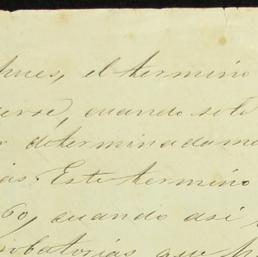 pues, el termino
cuando solo
determinadame
ias. Este termino
60, cuando así
probatorias que h